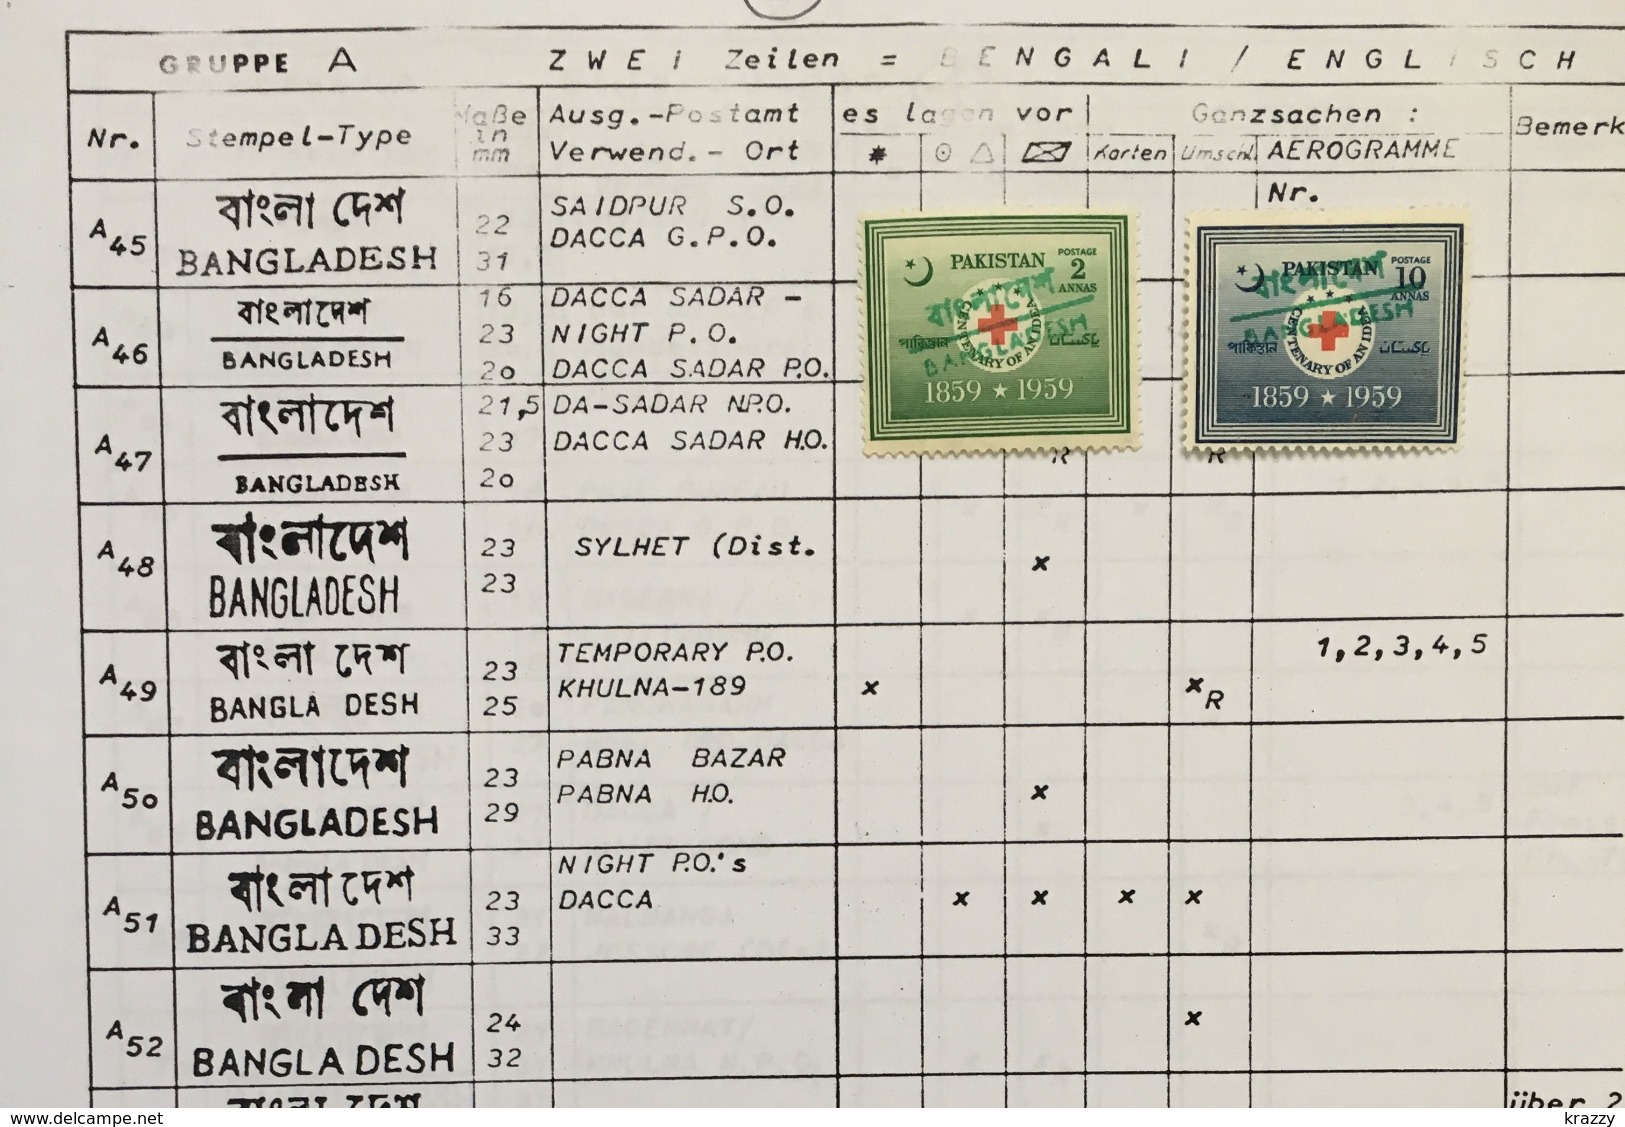 GRUPPE A ZWEI Zeilen = BENGALI / ENGLISCH
Nr. Stempel-Type Maße in mm Ausg.-Postamt Verwend.- Ort es lagen vor Ganzsachen : Karten Umschl. AEROGRAMME Nr. Bemerk
A45 বাংলা দেশ 22 SAIDPUR S.O.
BANGLADESH 31 DACCA G.P.O.
A46 বাংলাদেশ 16 DACCA SADAR -
23 NIGHT P.O.
BANGLADESH 20 DACCA SADAR P.O.
A47 বাংলাদেশ 21,5 DA-SADAR N.P.O.
23 DACCA SADAR H.O.
BANGLADESH 20
R R
A48 বাংলাদেশ 23 SYLHET (Dist. x
BANGLADESH 23
A49 বাংলা দেশ 23 TEMPORARY P.O. 1,2,3,4,5
BANGLA DESH 25 KHULNA-189 x x R
A50 বাংলাদেশ 23 PABNA BAZAR
BANGLADESH 29 PABNA H.O. x
A51 বাংলা দেশ 23 NIGHT P.O.'s
BANGLA DESH 33 DACCA x x x x
A52 বাংলা দেশ 24 x
BANGLA DESH 32
বাংলা দেশ über 2
PAKISTAN POSTAGE 2 ANNAS
বাংলাদেশ
BANGLADESH
পাকিস্তান پاکستان
CENTENARY OF AN IDEA
1859 ★ 1959
PAKISTAN POSTAGE 10 ANNAS
বাংলাদেশ
BANGLADESH
পাকিস্তান پاکستان
CENTENARY OF AN IDEA
1859 ★ 1959
www.delcampe.net krazzy